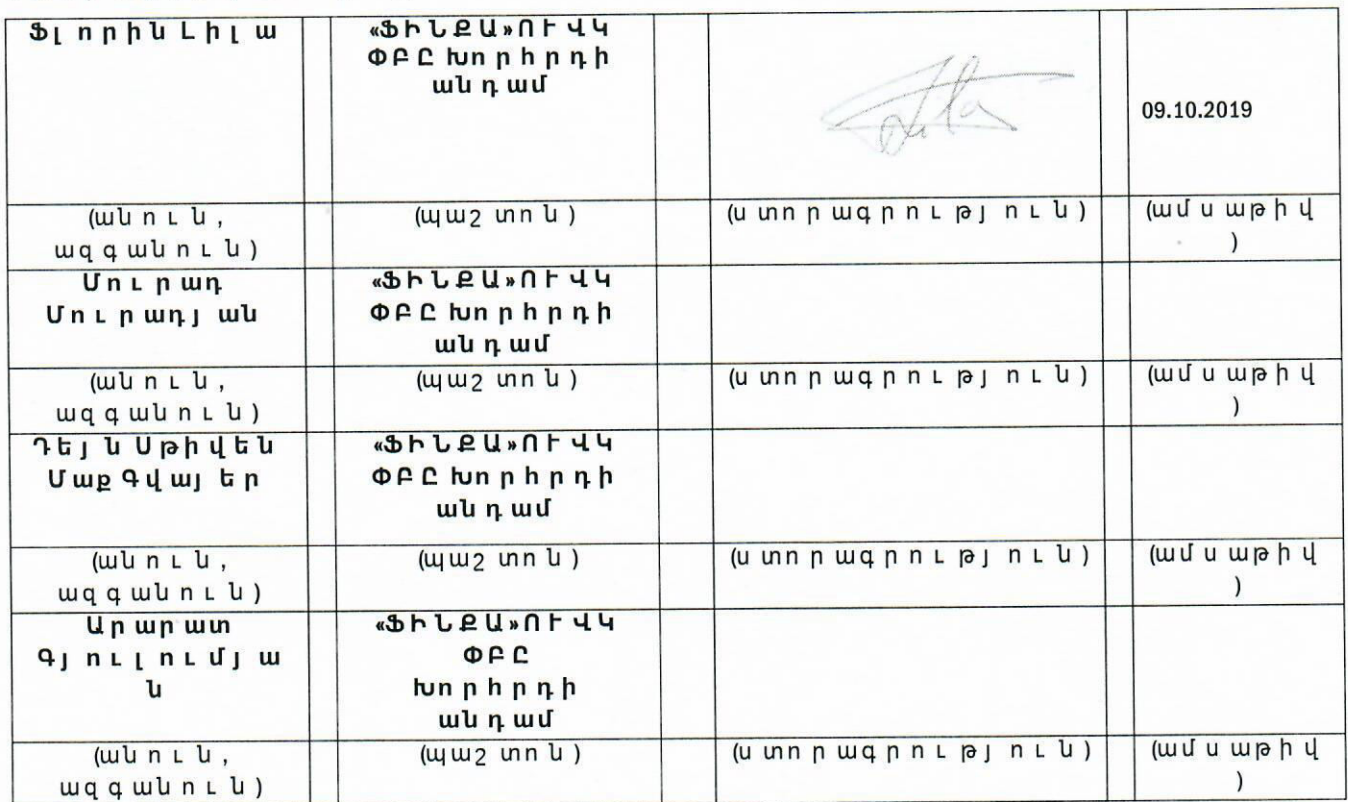 Ֆլորին Լիլա
«ՖԻՆՔԱ» ՈՒՎԿ
ՓԲԸ Խորհրդի
անդամ
09.10.2019
(անուն,
ազգանուն)
(պաշտոն)
(ստորագրություն)
(ամսաթիվ
)
Մուրադ
Մուրադյան
«ՖԻՆՔԱ» ՈՒՎԿ
ՓԲԸ Խորհրդի
անդամ
(անուն,
ազգանուն)
(պաշտոն)
(ստորագրություն)
(ամսաթիվ
)
Դեյն Սթիվեն
Մաք Գվայեր
«ՖԻՆՔԱ» ՈՒՎԿ
ՓԲԸ Խորհրդի
անդամ
(անուն,
ազգանուն)
(պաշտոն)
(ստորագրություն)
(ամսաթիվ
)
Արարատ
Գյուլումյա
ն
«ՖԻՆՔԱ» ՈՒՎԿ
ՓԲԸ
Խորհրդի
անդամ
(անուն,
ազգանուն)
(պաշտոն)
(ստորագրություն)
(ամսաթիվ
)